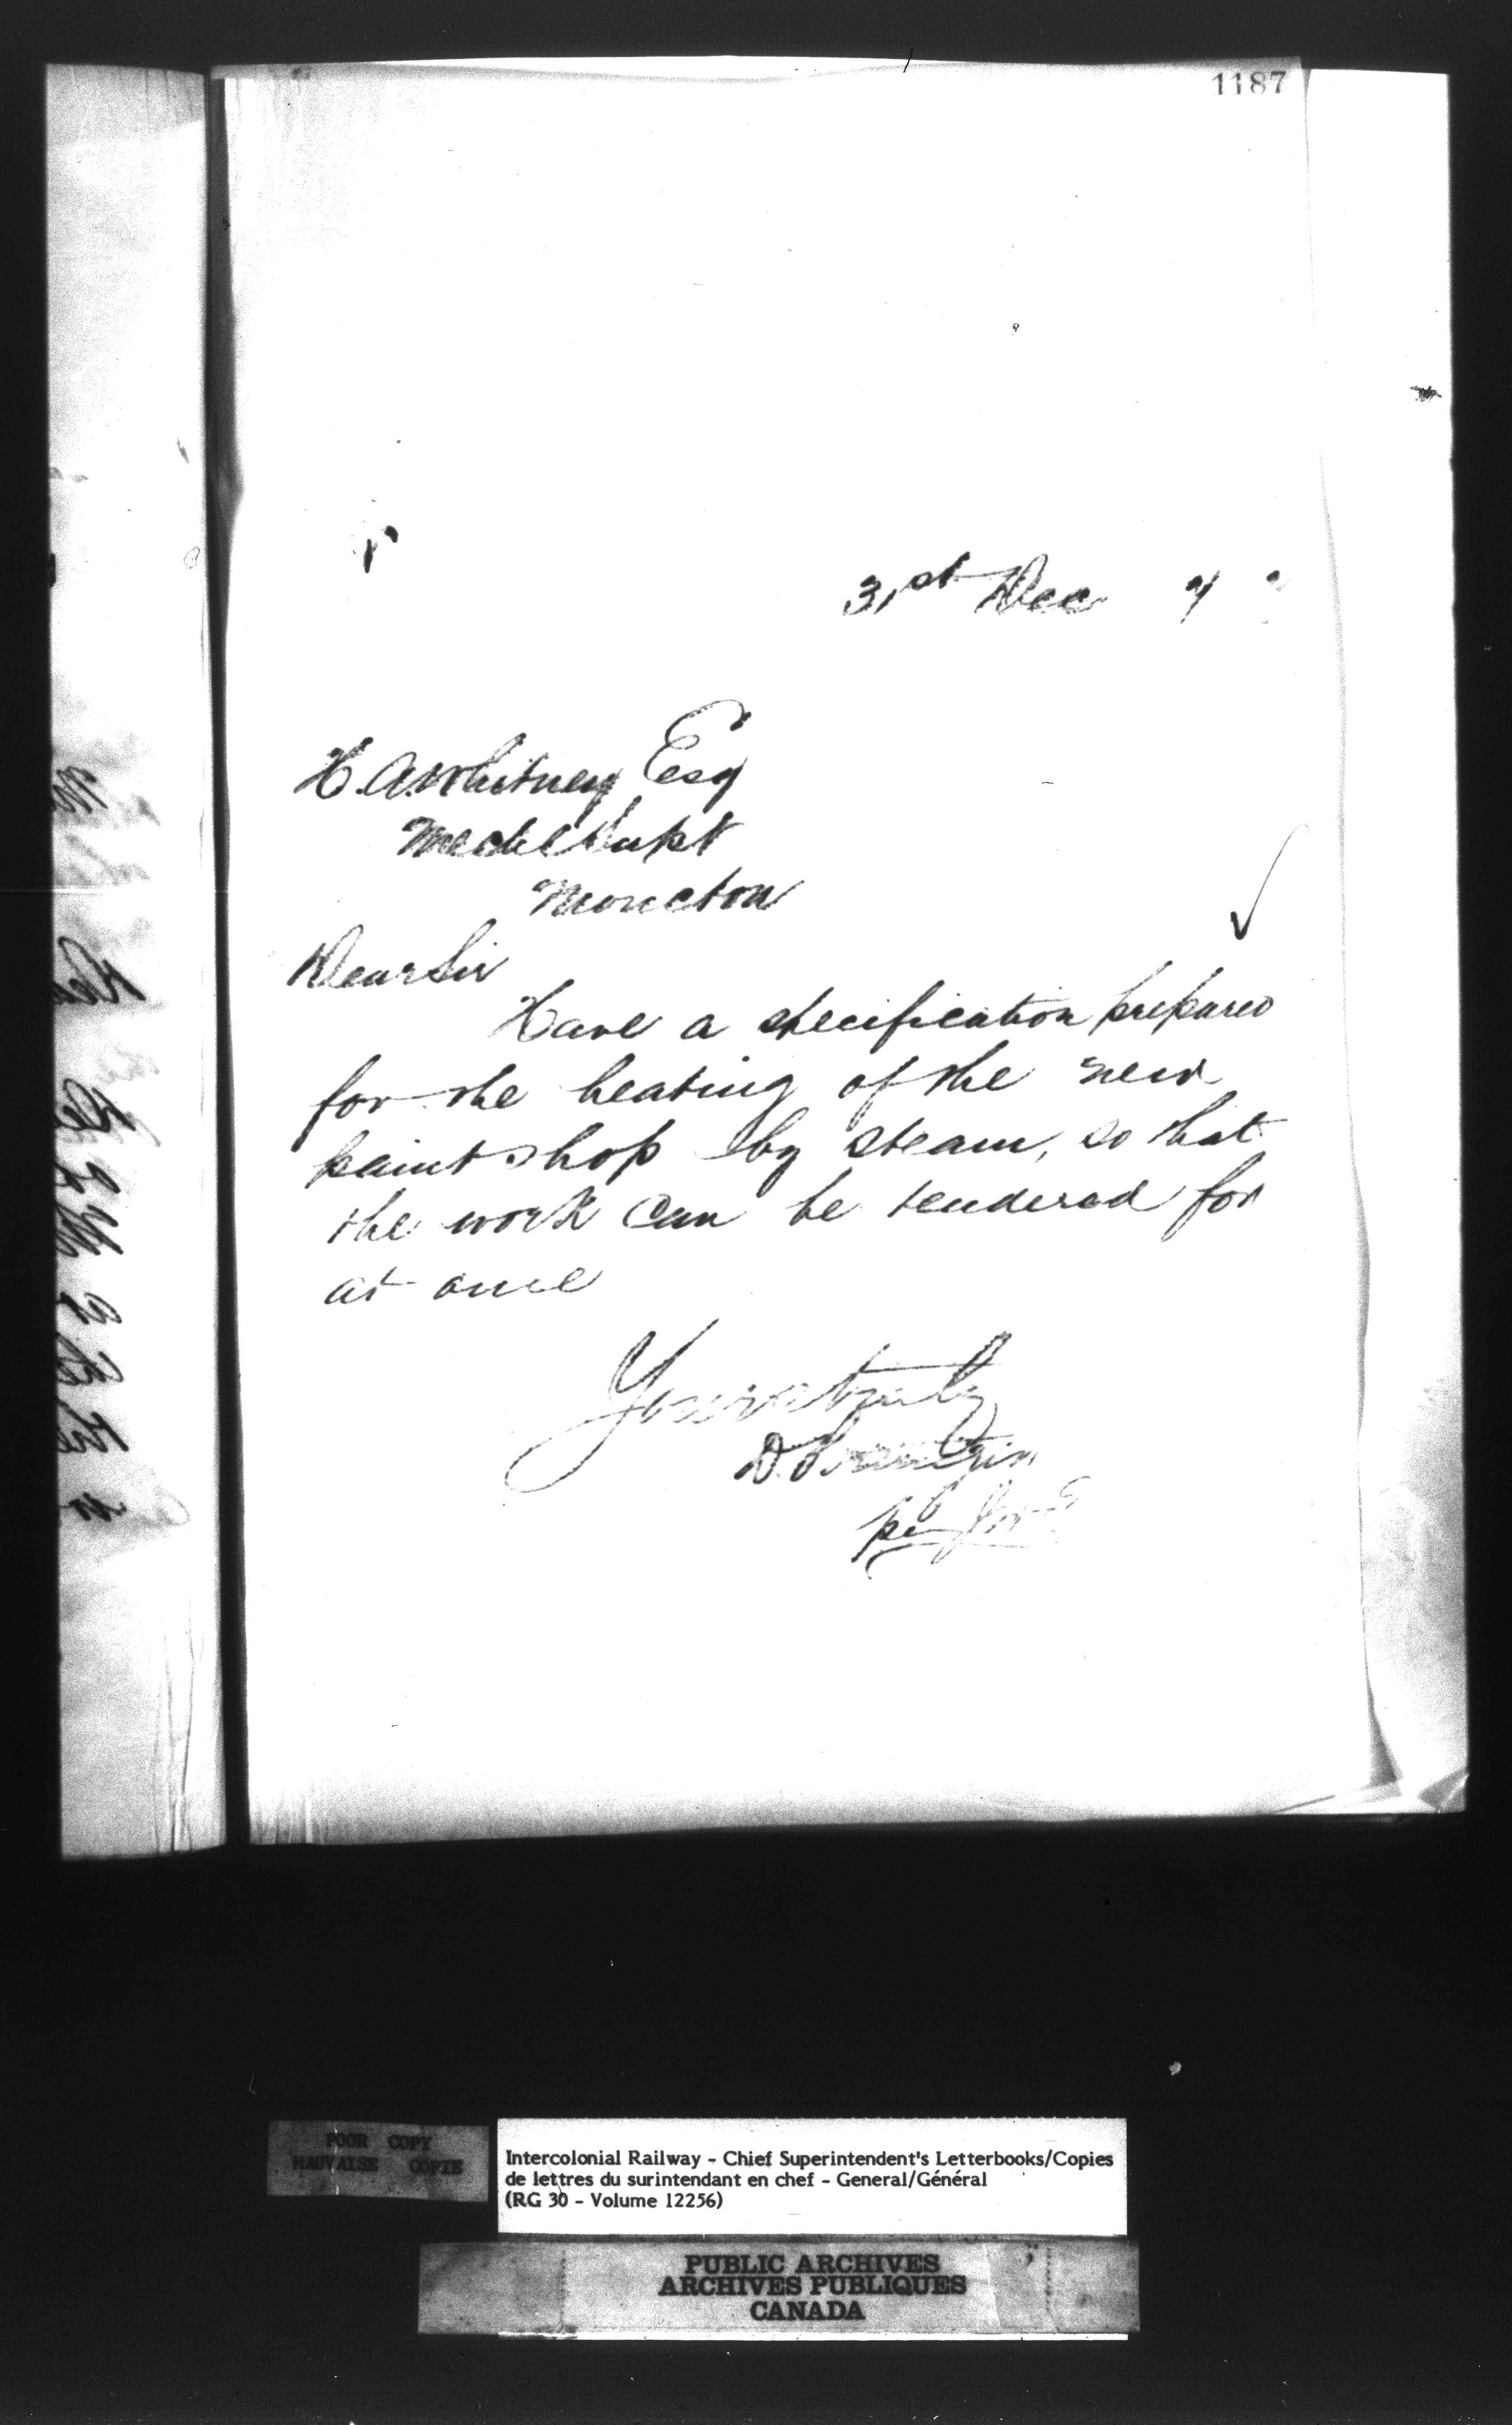 1187
31st Dec 7
H. A. Whitney Esq
Mechl Supt
Moncton
Dear Sir
Have a specification prepared
for the heating of the new
paint shop by steam, so that
the work can be tendered for
at once
Yours truly
D. Pottinger
per
POOR COPY
MAUVAISE COPIE
Intercolonial Railway - Chief Superintendent's Letterbooks/Copies
de lettres du surintendant en chef - General/Général
(RG 30 - Volume 12256)
PUBLIC ARCHIVES
ARCHIVES PUBLIQUES
CANADA